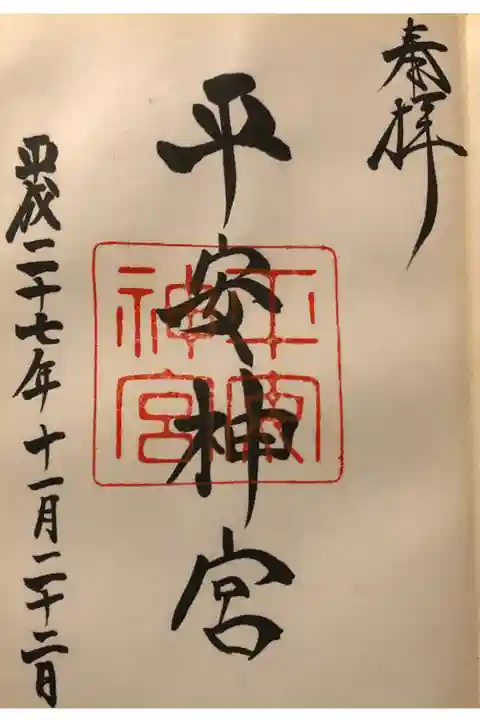 奉拝
平安神宮
平安
神宮
平成二十七年十一月二十二日